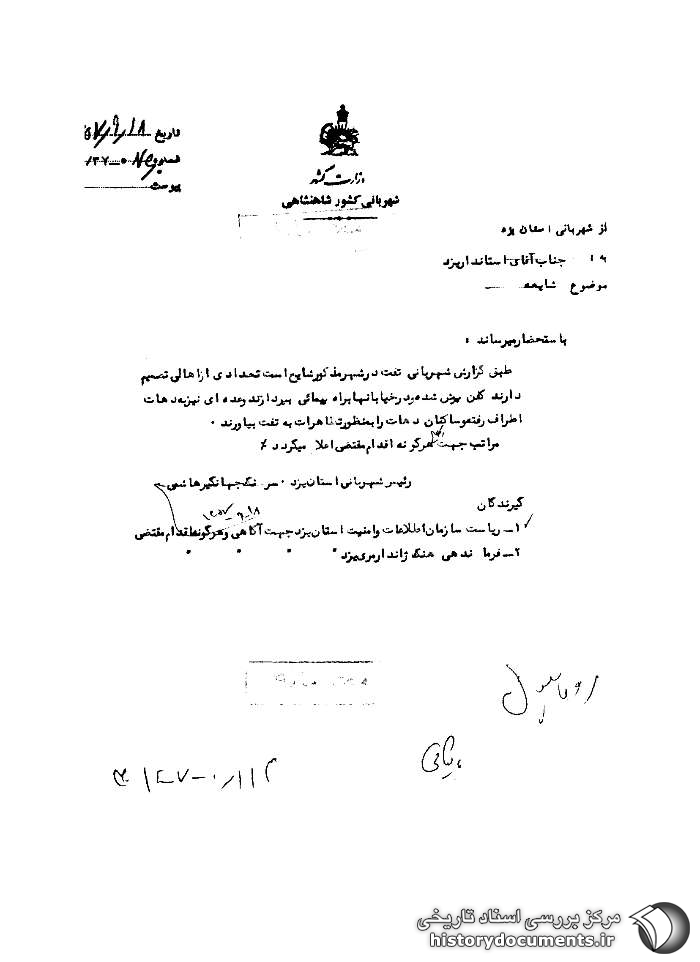 تاریخ ۵۷/۹/۱۸
شماره
پیوست
وزارت کشور
شهربانی کشور شاهنشاهی
از شهربانی استان یزد
به جناب آقای استاندار یزد
موضوع شایعه
باستحضار میرساند :
طبق گزارش شهربانی تفت در شهر مذکور شایع است تعدادی از اهالی تصمیم
دارند کفن پوش شده و در خیابانها براه پیمائی بپردازند و عده ای نیز به دهات
اطراف رفته و ساکنان دهات را بمنظور تظاهرات به تفت بیاورند ۰
مراتب جهت هرگونه اقدام مقتضی اعلام میگردد ٪
رئیس شهربانی استان یزد ۰ سرهنگ جهانگیر هاشمی
گیرندگان
۱ــ ریاست سازمان اطلاعات و امنیت استان یزد جهت آگاهی و هرگونه اقدام مقتضی
۲ــ فرماندهی هنگ ژاندارمری یزد
مرکز بررسی اسناد تاریخی
historydocuments.ir